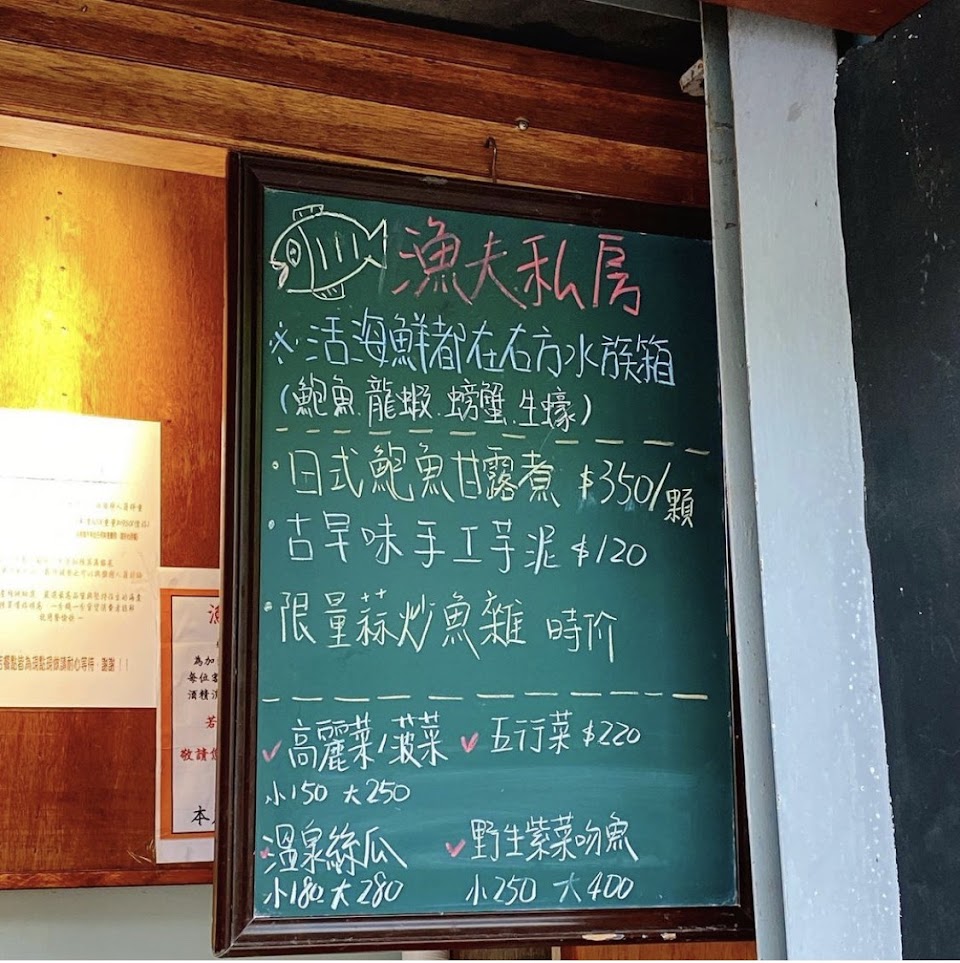 漁夫私房
※.活海鮮都在右方水族箱
(鮑魚.龍蝦.螃蟹.生蠔)
·日式鮑魚甘露煮 $350/顆
·古早味手工芋泥 $120
·限量蒜炒魚雜 時价
✓高麗菜/菠菜
小150 大250
✓五行菜 $220
✓溫泉絲瓜
小180 大280
✓野生紫菜吻魚
小250 大400
為加
每位
酒精
若
敬請
本